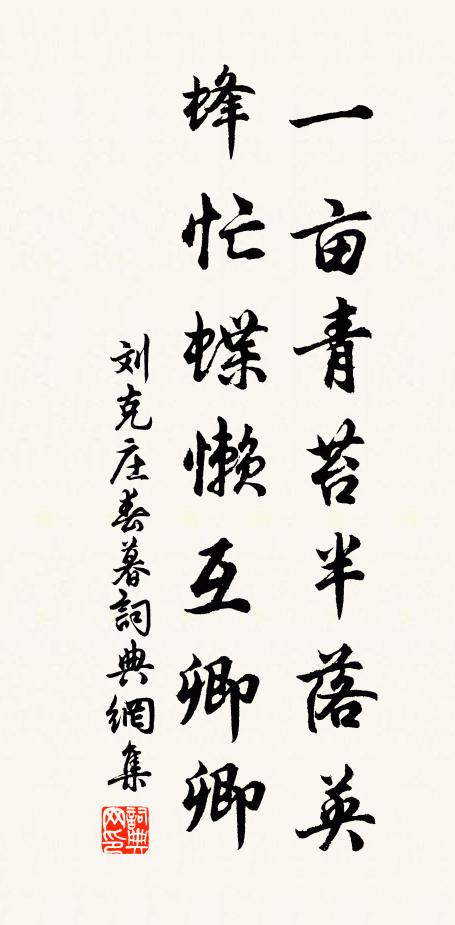 一亩青苔半落英
蜂忙蝶懒互卿卿
刘克庄春暮詞典網集
詞典网印